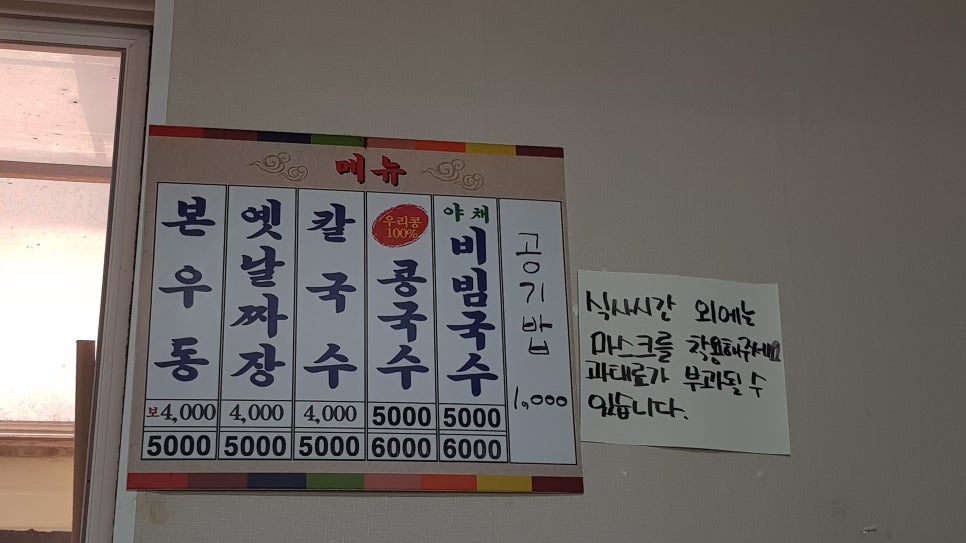 메뉴
본우동
보4,000
5000
옛날짜장
4,000
5000
칼국수
4,000
5000
우리콩
100%
콩국수
5000
6000
야채
비빔국수
5000
6000
공기밥
1,000
식사시간 외에는
마스크를 착용해주세요
과태료가 부과될 수
있습니다.